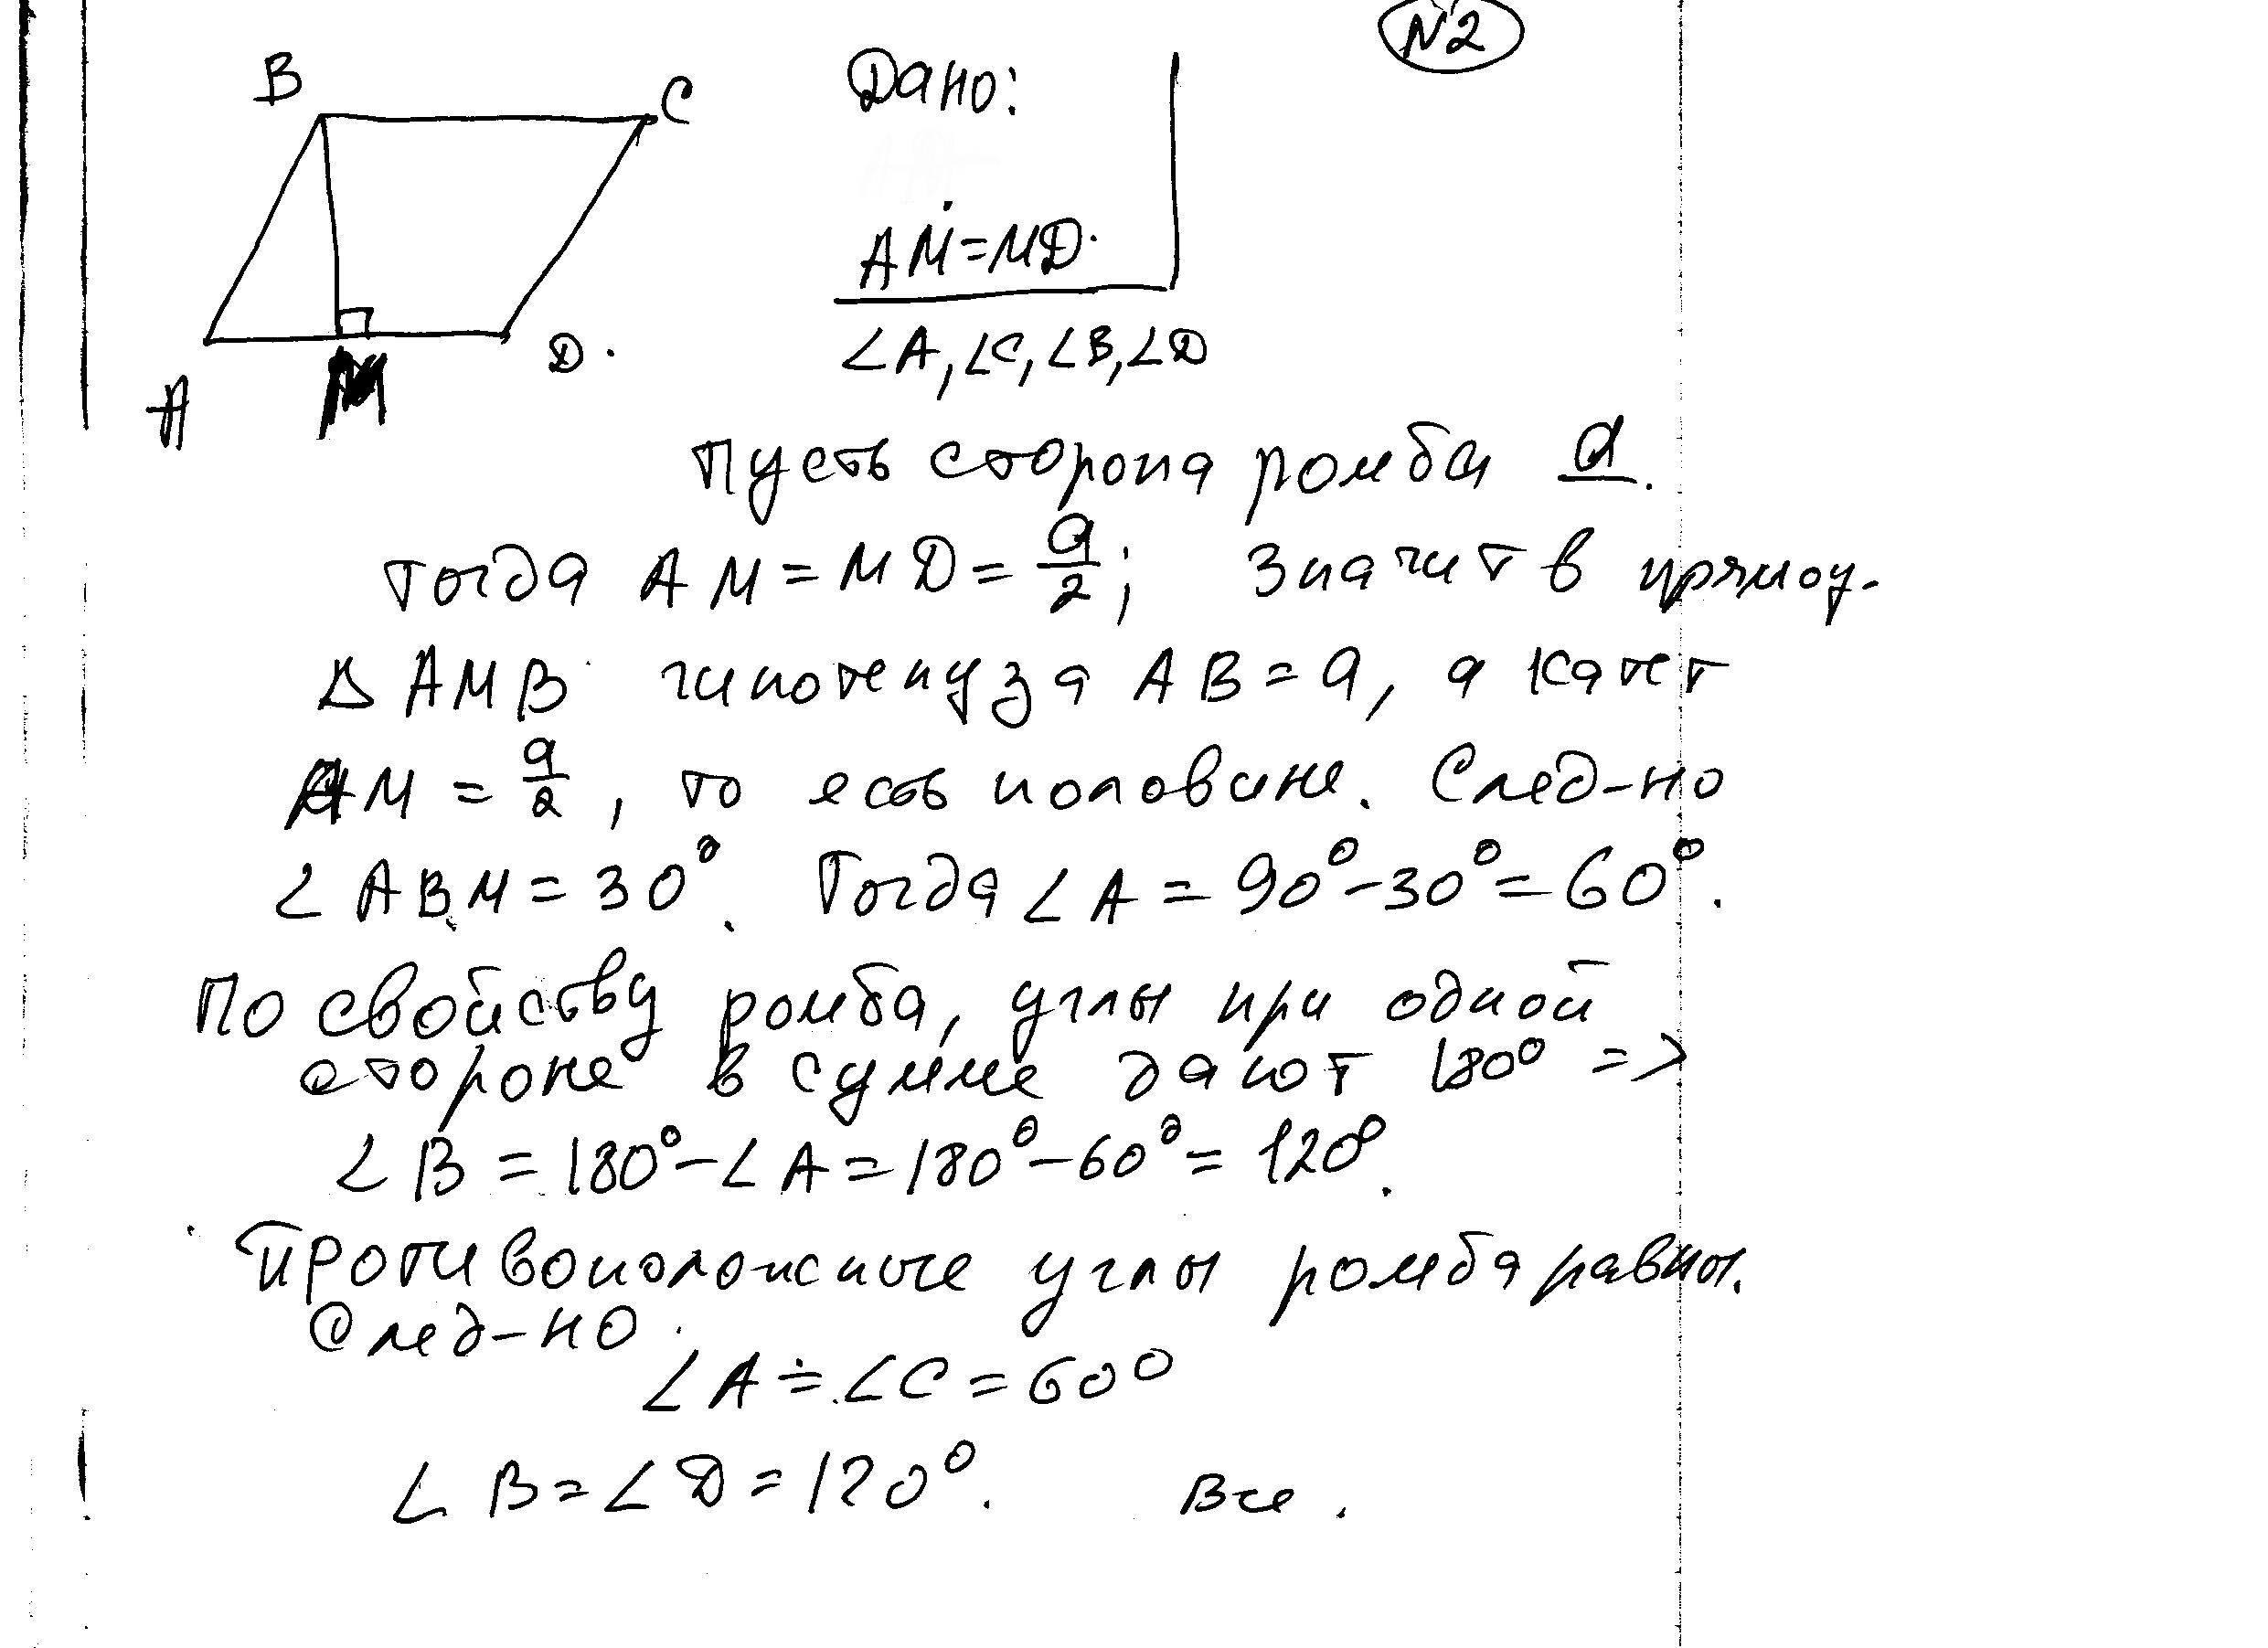 N2
B
C
Дано:
AM=MD.
A
M
D.
∠A, ∠C, ∠B, ∠D
Пусть сторона ромба a.
Тогда AM = MD = a/2; Значит в прямоу.
Δ AMB гипотенуза AB = a, а катет
AM = a/2, то есть половине. След-но
∠ABM = 30°. Тогда ∠A = 90° - 30° = 60°.
По свойству ромба, углы при одной
стороне в сумме дают 180° =>
∠B = 180° - ∠A = 180° - 60° = 120°.
Противоположные углы ромба равны.
След-но
∠A = ∠C = 60°
∠B = ∠D = 120°. Все.